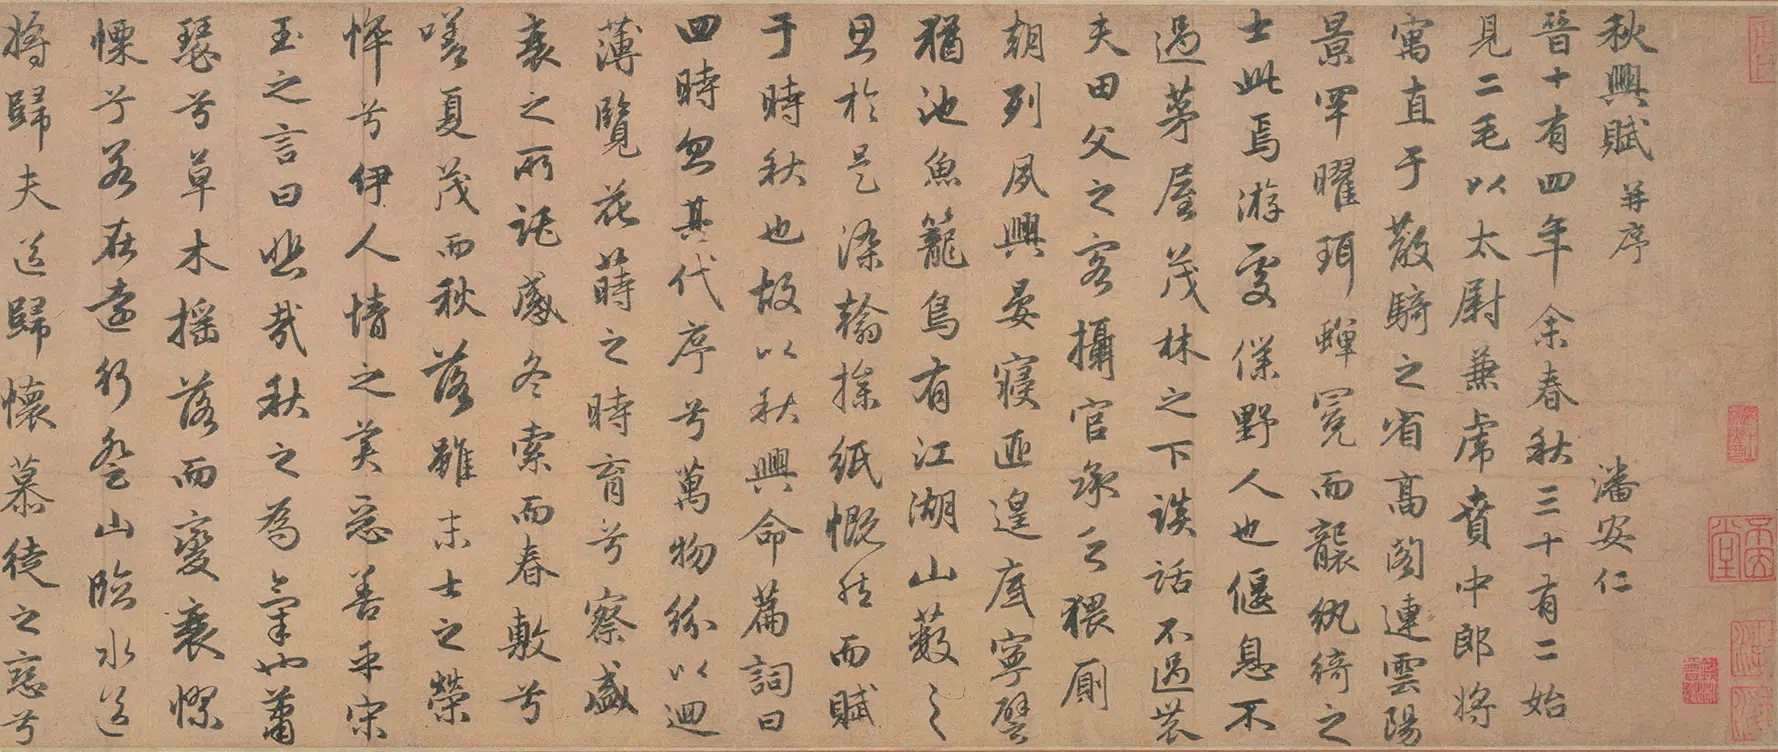 秋興賦 并序 潘安仁
晉十有四年余春秋三十有二始
見二毛以太尉兼虎賁中郎將
寓直于散騎之省高閣連雲陽
景罕曜珥蟬冕而襲紈綺之
士此焉游處僕野人也偃息不
過茅屋茂林之下談話不過農
夫田父之客攝官承乏猥厠
朝列夙興晏寢匪遑底寧譬
猶池魚籠鳥有江湖山藪之
思於是染翰操紙慨然而賦
于時秋也故以秋興命篇詞曰
四時忽其代序兮萬物紛以迴
薄覽花蒔之時育兮察盛
衰之所託感冬索而春敷兮
嗟夏茂而秋落雖末士之榮
悴兮伊人情之美惡善乎宋
玉之言曰悲哉秋之為氣也蕭
瑟兮草木搖落而變衰憀
慄兮若在遠行登山臨水送
將歸夫送歸懷慕徒之戀兮